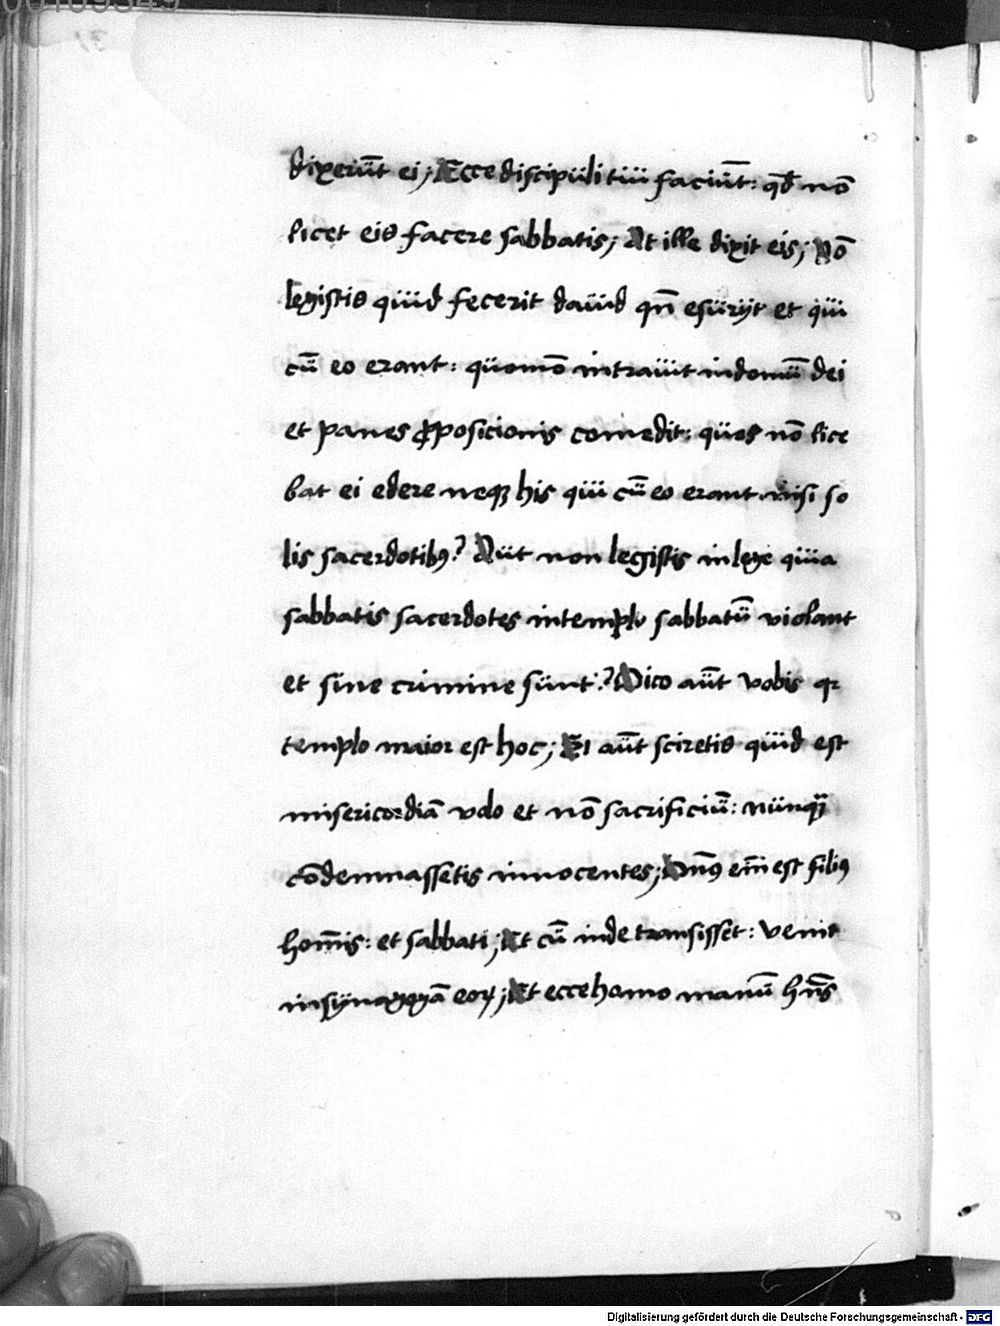 dixerūt ei; Ecce discipuli tui faciūt: qd̄ nō
licet eis facere sabbatis; At ille dixit eis; nō
legistis quid fecerit dauid qn̄ esurijt et qui
cū eo erant: quomō intrauit in domū dei
et panes ꝓposicionis comedit: quos nō lice
bat ei edere neqꝫ his qui cū eo erant nisi so
lis sacerdotibꝰ? Aut non legistis in lege quia
sabbatis sacerdotes in templo sabbatū violant
et sine crimine sunt? Dico aūt vobis qꝛ
templo maior est hoc; Si aūt sciretis quid est
misericordiā volo et nō sacrificiū: nunqꝫ
cōdemnassetis innocentes; Dn̄ꝰ em̄ est filiꝰ
hom̄is: et sabbati; Et cū inde transisset: venit
in synagogā eoꝝ; Et ecce homo manū hn̄s
Digitalisierung gefördert durch die Deutsche Forschungsgemeinschaft - DFG